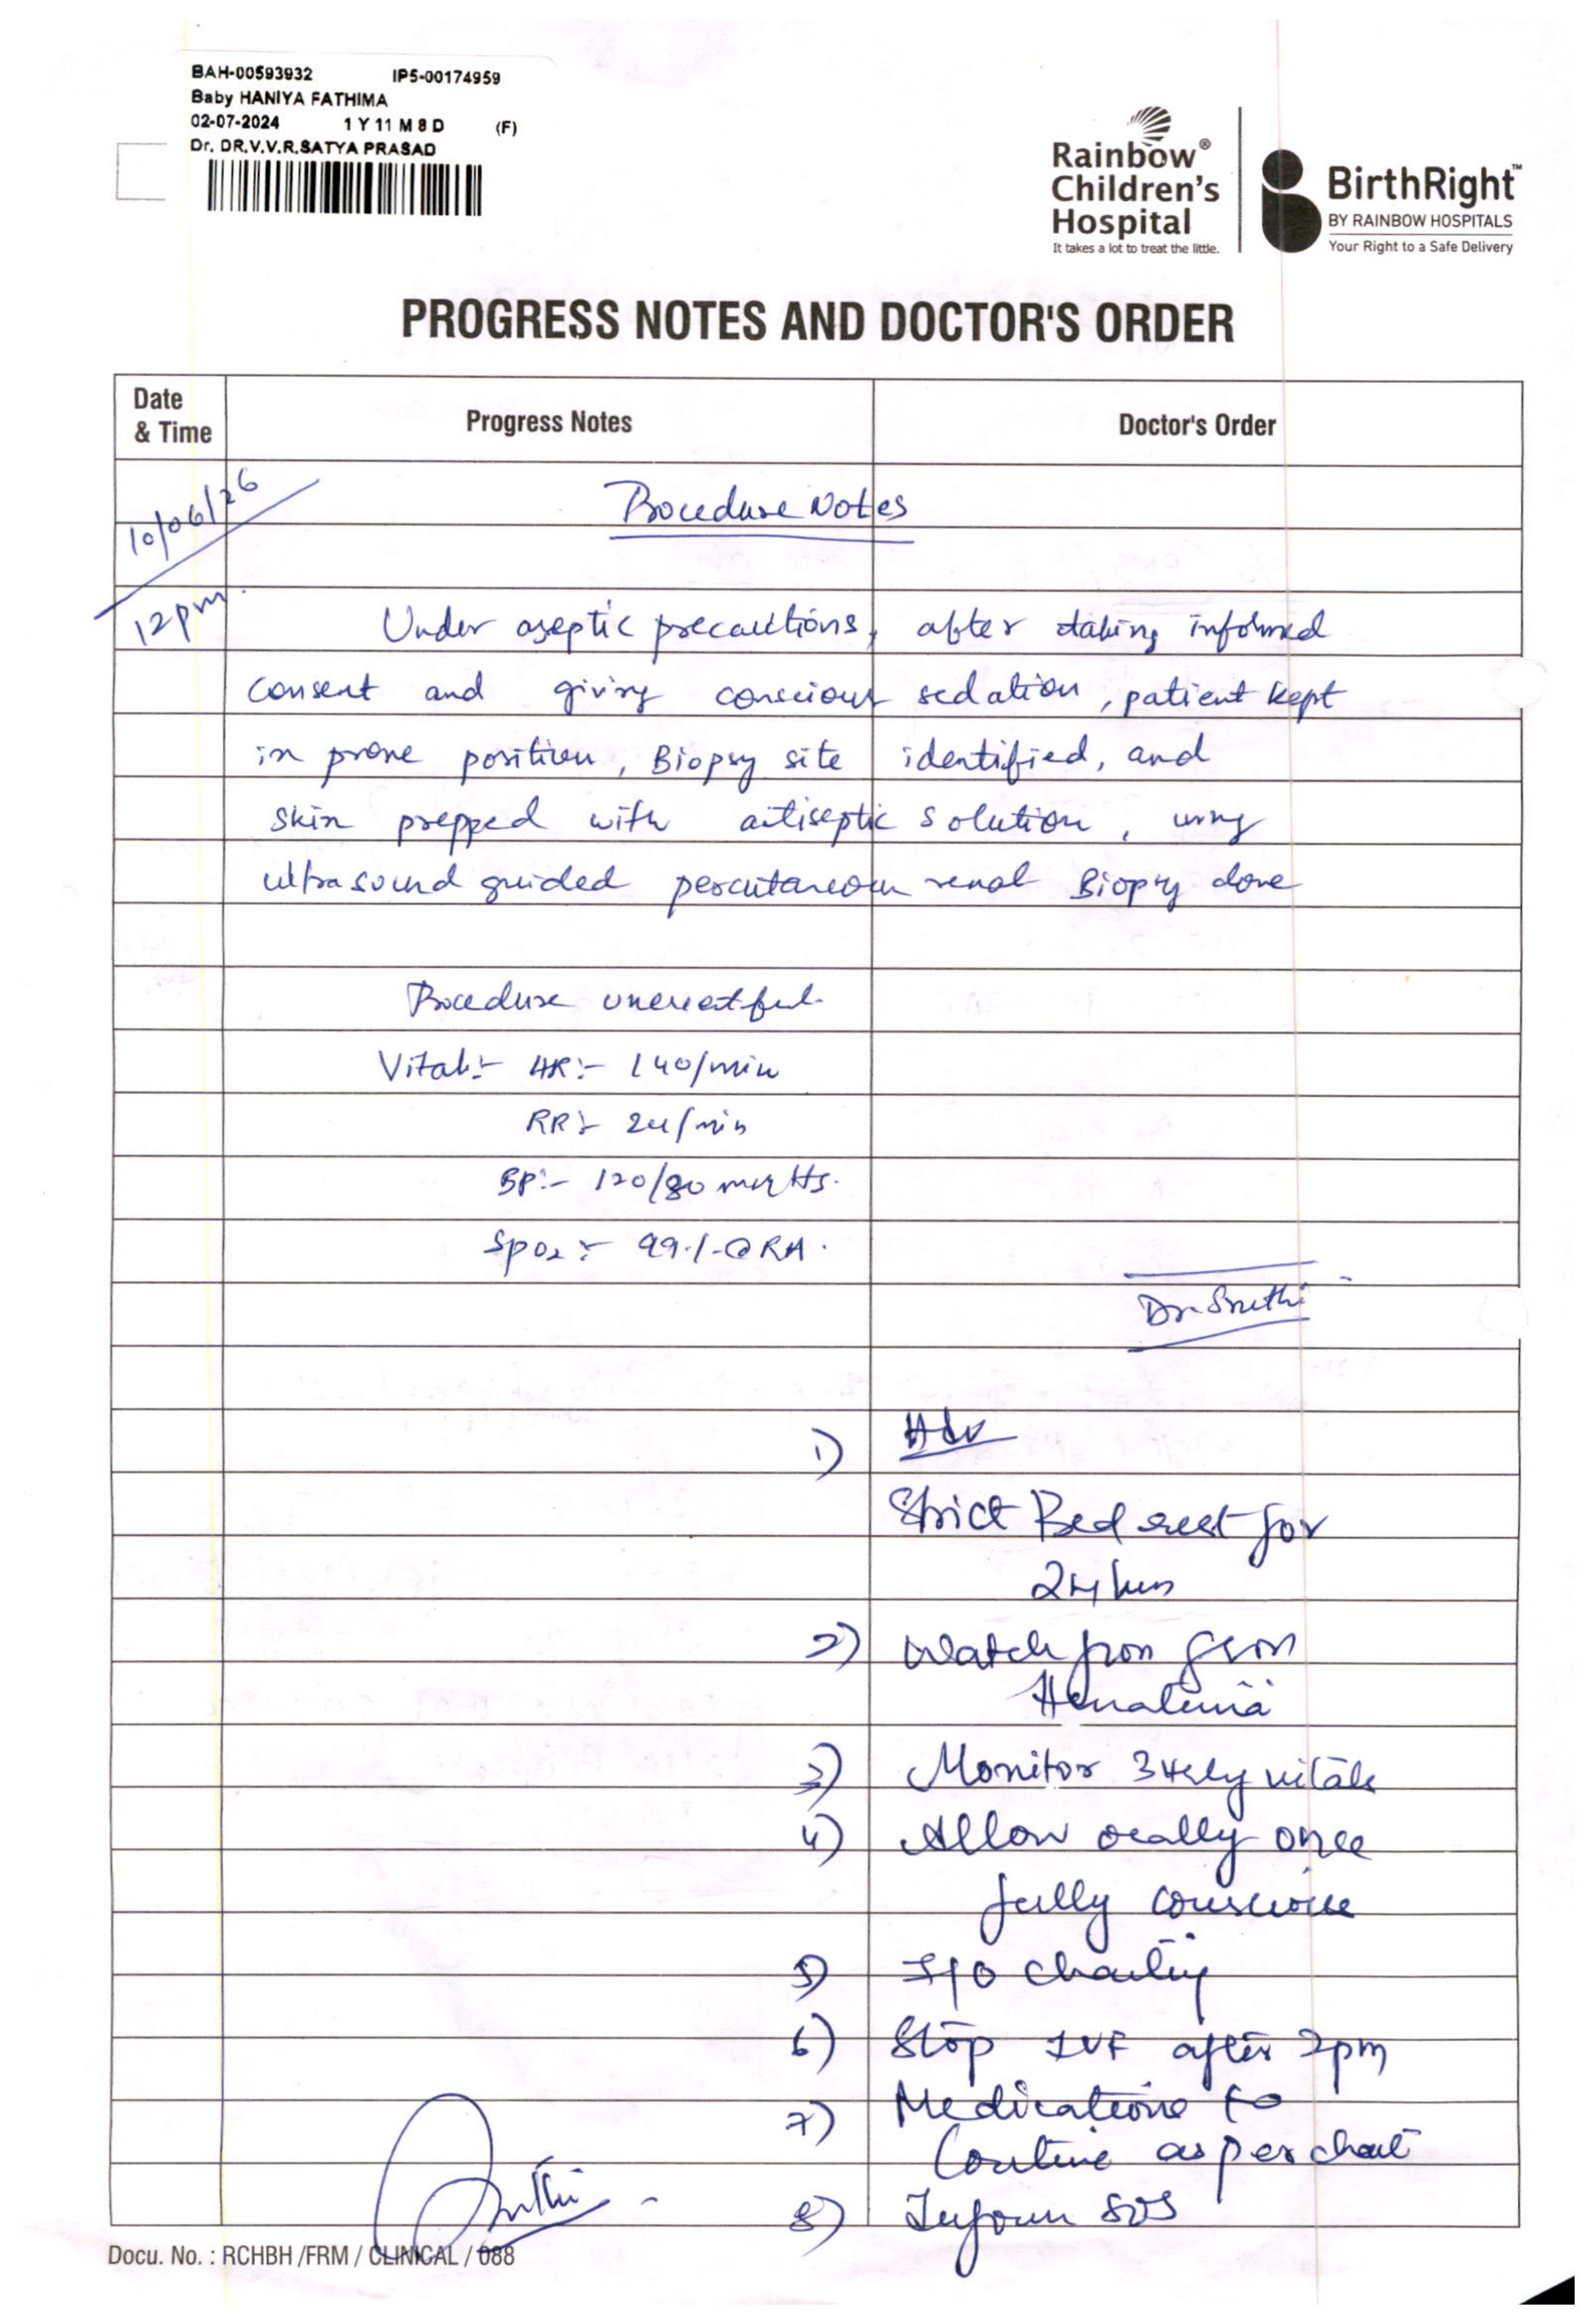 BAH-00593932 IP5-00174959
Baby HANIYA FATHIMA
02-07-2024 1 Y 11 M 8 D (F)
Dr. DR.V.V.R.SATYA PRASAD
Rainbow®
Children's
Hospital
It takes a lot to treat the little.
BirthRight™
BY RAINBOW HOSPITALS
Your Right to a Safe Delivery
PROGRESS NOTES AND DOCTOR'S ORDER
Date & Time Progress Notes Doctor's Order
10/06/26
12pm.
Procedure Notes
Under aseptic precautions, after taking informed
consent and giving conscious sedation, patient kept
in prone position, Biopsy site identified, and
skin prepped with antiseptic solution, using
ultrasound guided percutaneous renal Biopsy done
Procedure uneventful.
Vitals:- HR:- 140/min
RR:- 24/min
BP:- 120/80 mmHg.
SpO2:- 99%@RA.
Dr. Sruthi
1) Adv
Strict Bed rest for
24 hrs
2) Watch for gross
Hematuria
3) Monitor 3 Hrly vitals
4) Allow orally once
fully conscious
5) I/O charting
6) Stop IVF after 2pm
7) Medications to
Continue as per chart
8) Inform SOS
Docu. No. : RCHBH /FRM / CLINICAL / 088